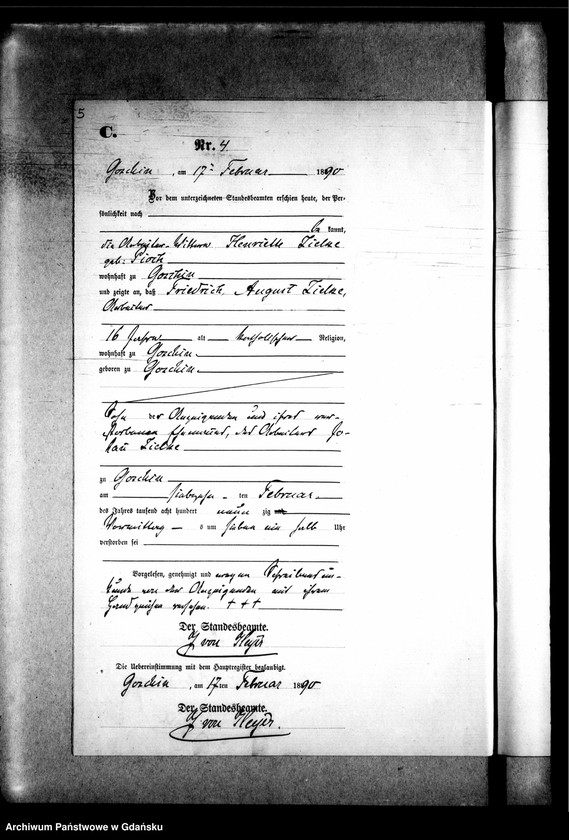 5
C.
Nr. 4.
Goschin, am 17ten Februar 1890
Vor dem unterzeichneten Standesbeamten erschien heute, der Per-
sönlichkeit nach
be kannt,
die Arbeiter-Wittwe Henriette Zielke
geb: Pioch
wohnhaft zu Goschin
und zeigte an, daß Friedrich August Zielke,
Arbeiter
16 Jahre alt katholischer Religion,
wohnhaft zu Goschin
geboren zu Goschin
Sohn der Anzeigenden und ihres ver-
storbenen Ehemannes, des Arbeiters Jo-
hann Zielke
zu Goschin
am siebzehn ten Februar
des Jahres tausend acht hundert neun zig
Vormittag s um sieben ein halb Uhr
verstorben sei
Vorgelesen, genehmigt und wegen Schreibensun-
kunde von der Anzeigenden mit ihrem
Handzeichen versehen. + + +
Der Standesbeamte.
von Heyer
Die Uebereinstimmung mit dem Hauptregister beglaubigt.
Goschin, am 17ten Februar 1890
Der Standesbeamte.
von Heyer.
Archiwum Państwowe w Gdańsku